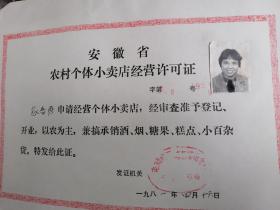 安徽省
农村个体小卖店经营许可证
字第 号
申请经营个体小卖店，经审查准予登记、
开业，以农为主，兼搞承销酒、烟、糖果、糕点、小百杂
货，特发给此证。
发证机关
一九八 年 月 日